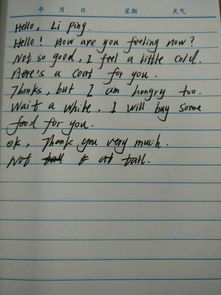 年 月 日 星期 天气
Hello, Li ping.
Hello! How are you feeling now?
Not so good, I feel a little cold.
Here's a coat for you.
Thanks, but I am hungry too.
Wait a white, I will buy some
food for you.
Ok, Thank you very much.
Not at tall.